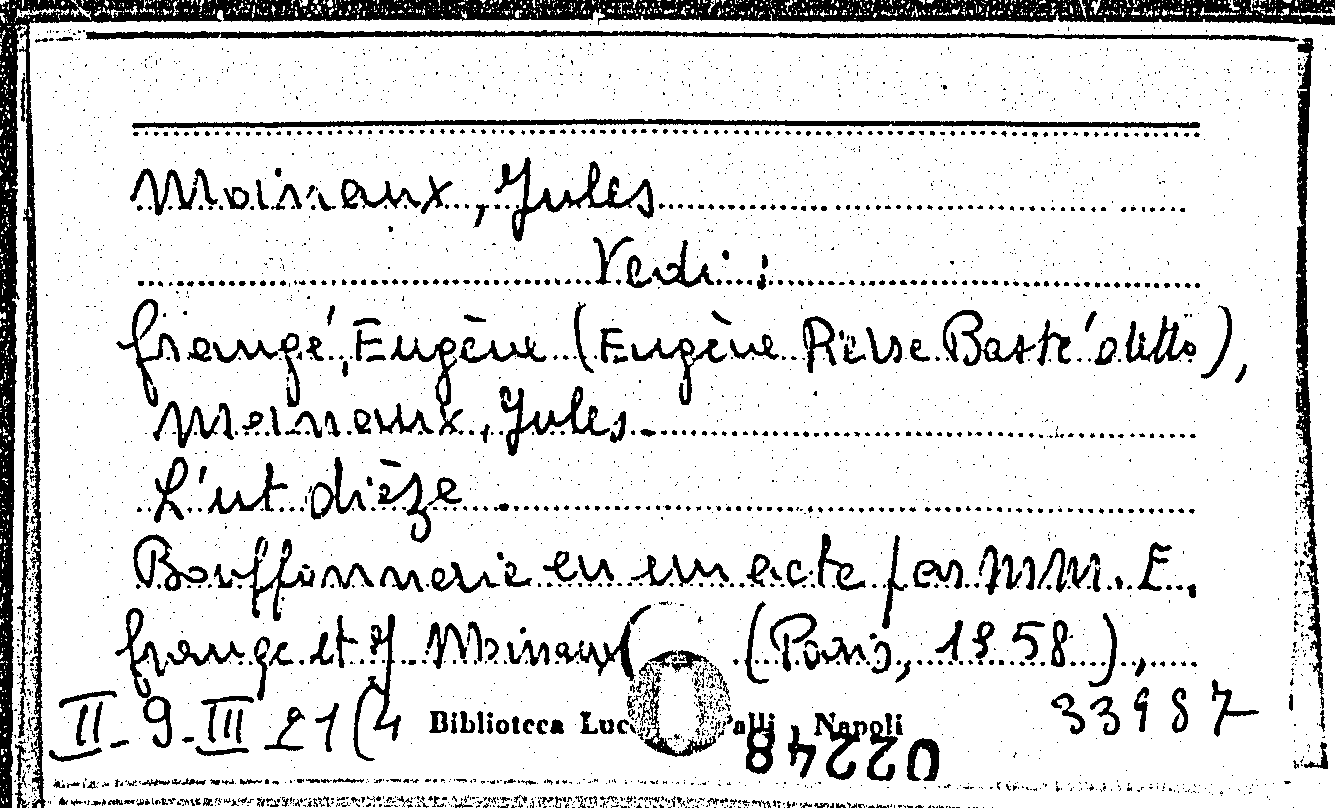 Moinaux, Jules
Vedi:
Grangé, Eugène (Eugène Pierre Basté detto),
Moinaux, Jules.
L'ut dièze.
Bouffonnerie en un acte par MM. E.
Grange et J. Moinaux (Paris, 1858),
II-9-III 21(4 Biblioteca Luc alli, Napoli 33987
02248